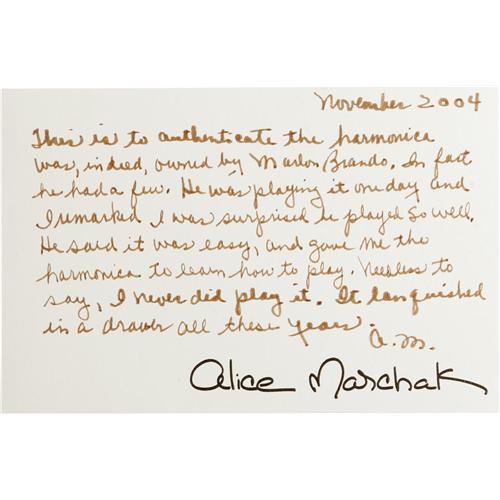 November 2004
This is to authenticate the harmonica
was, indeed, owned by Marlon Brando. In fact
he had a few. He was playing it one day and
I remarked I was surprised he played so well.
He said it was easy, and gave me the
harmonica to learn how to play. Needless to
say, I never did play it. It languished
in a drawer all these years.
A.M.
Alice Marchak